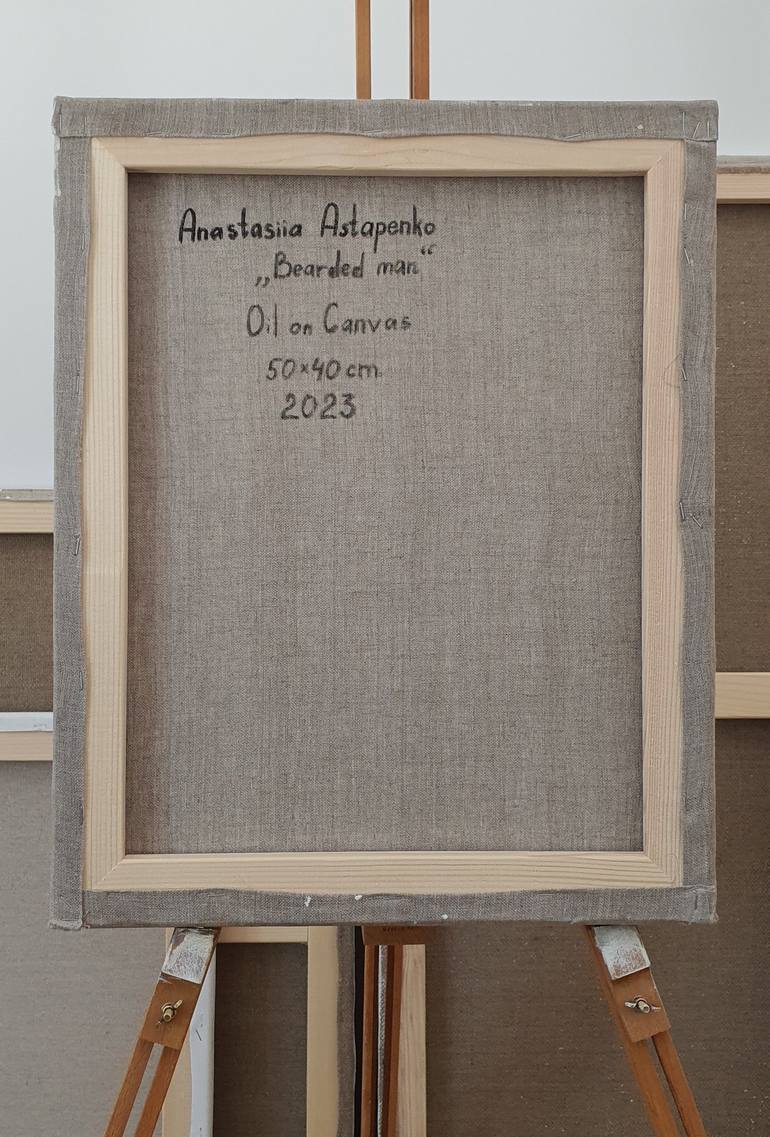 Anastasiia Astapenko
„Bearded man“
Oil on Canvas
50×40 cm.
2023